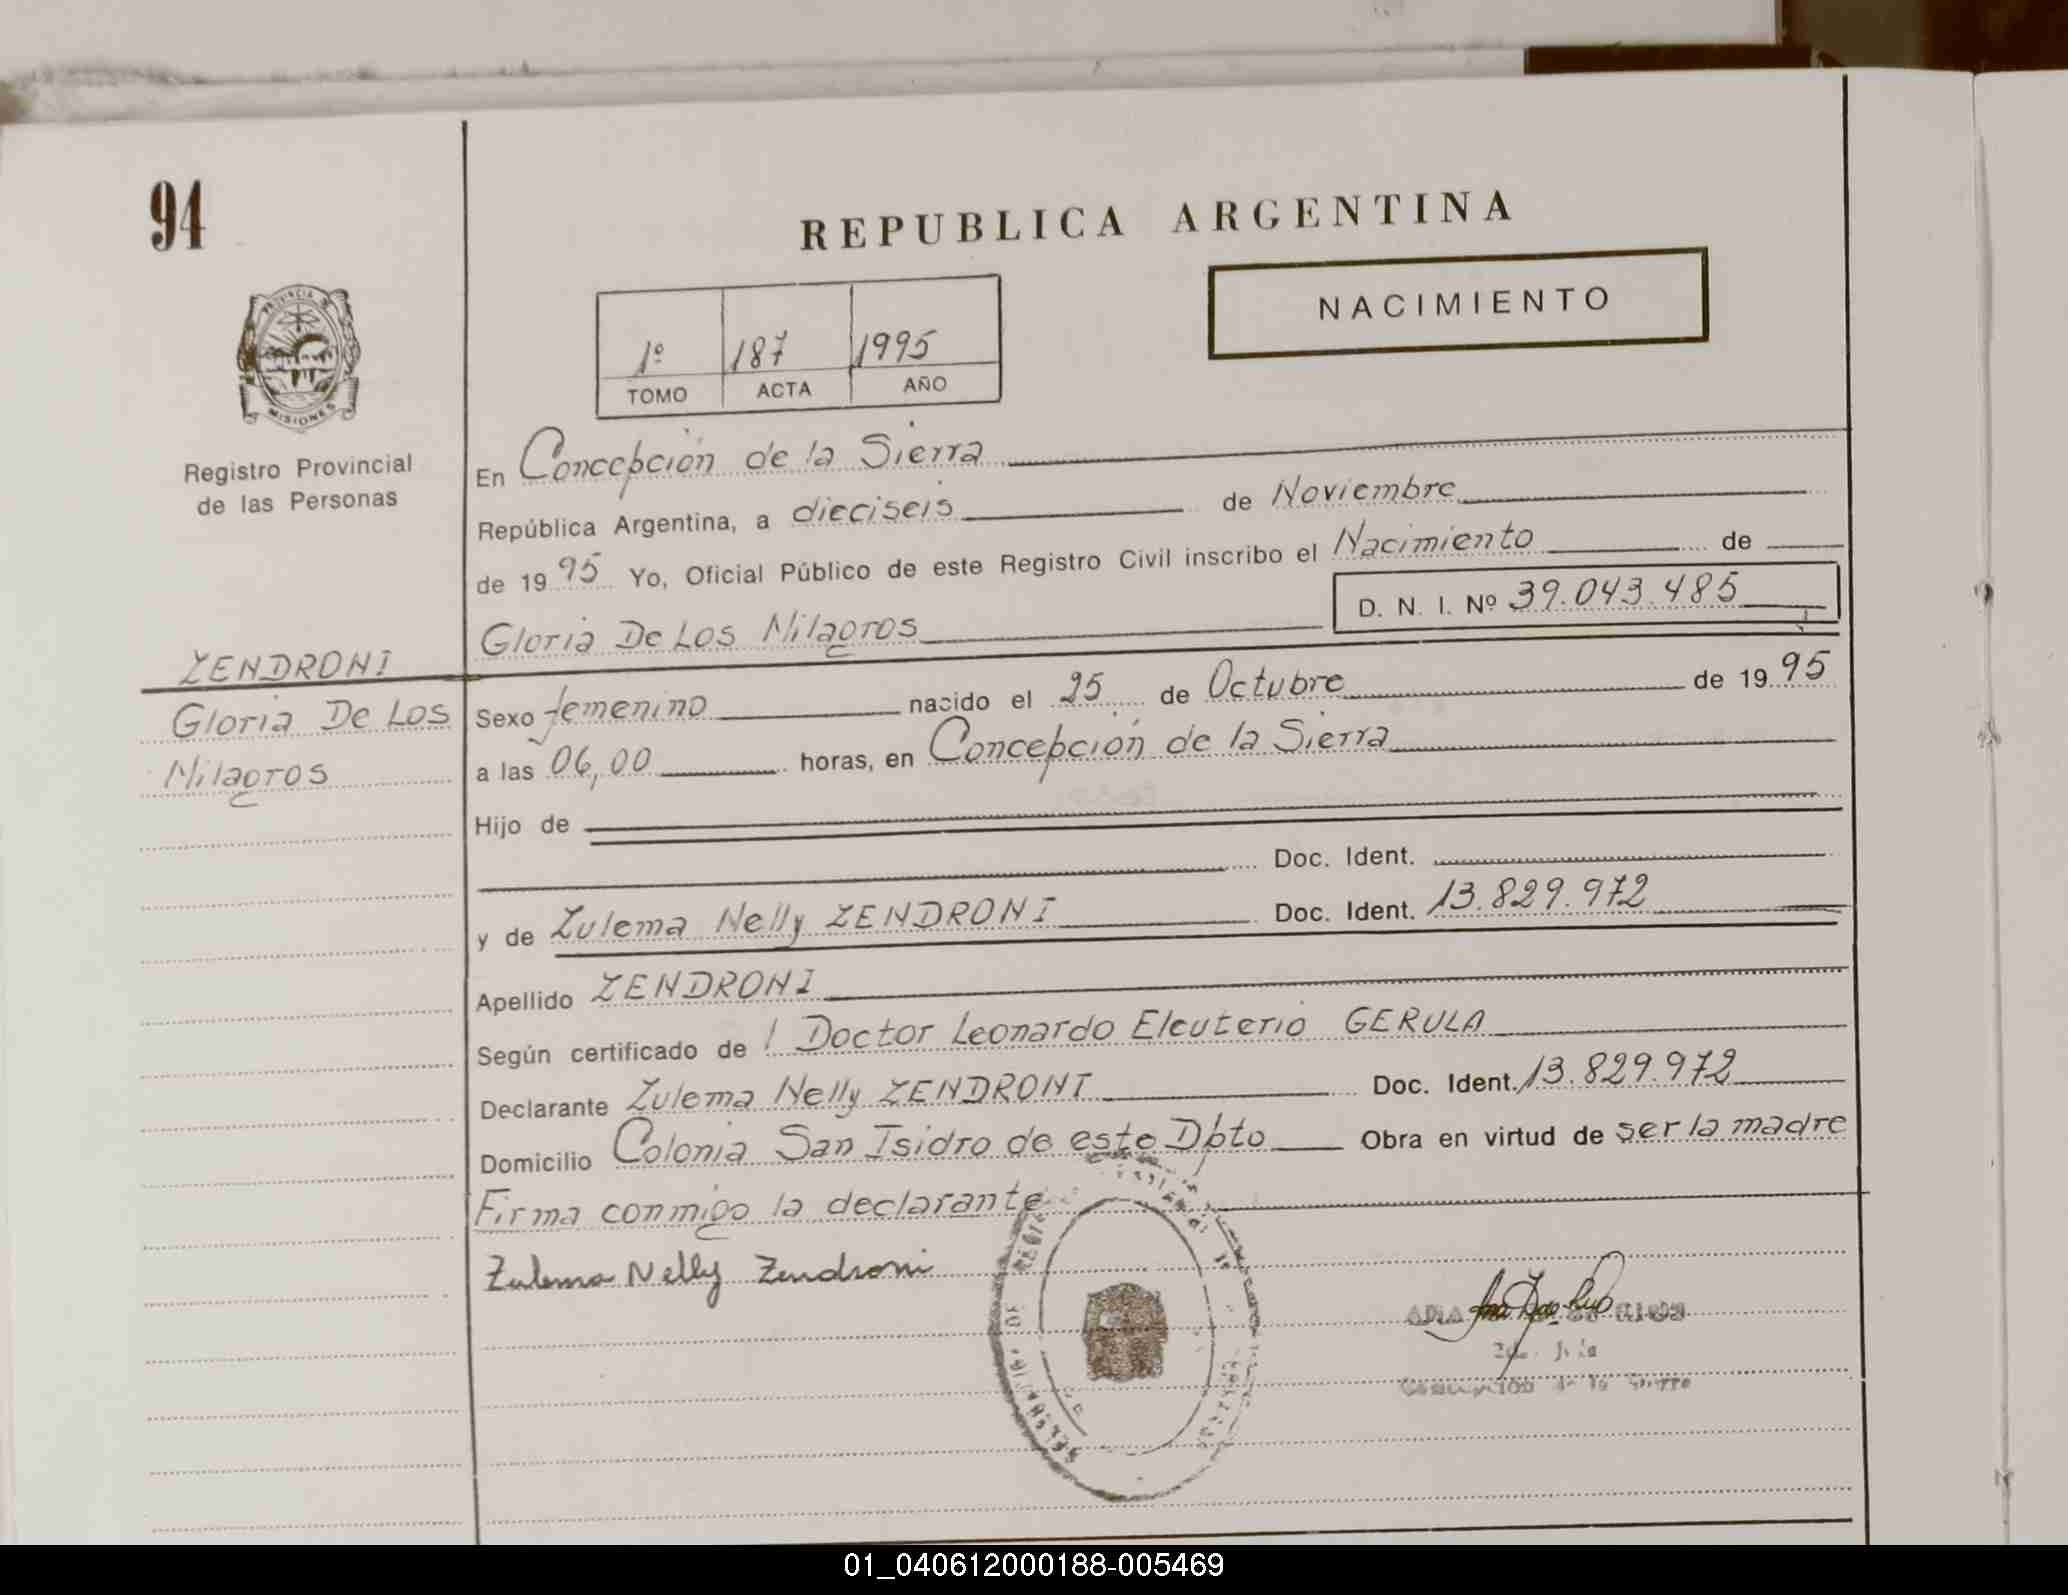 94
REPUBLICA ARGENTINA
NACIMIENTO
1º 187 1995
TOMO ACTA AÑO
PROVINCIA DE
MISIONES
Registro Provincial
de las Personas
En Concepción de la Sierra
República Argentina, a dieciseis de Noviembre
de 19 95 Yo, Oficial Público de este Registro Civil inscribo el Nacimiento de
Gloria De Los Milagros D. N. I. Nº 39.043.485
ZENDRONI
Gloria De Los
Milagros
Sexo femenino nacido el 25 de Octubre de 19 95
a las 06,00 horas, en Concepción de la Sierra
Hijo de
Doc. Ident.
y de Zulema Nelly ZENDRONI Doc. Ident. 13.829.972
Apellido ZENDRONI
Según certificado de Doctor Leonardo Eleuterio GERULA
Declarante Zulema Nelly ZENDRONI Doc. Ident. 13.829.972
Domicilio Colonia San Isidro de este Dpto Obra en virtud de ser la madre
Firma conmigo la declarante
Zulema Nelly Zendroni
01_040612000188-005469